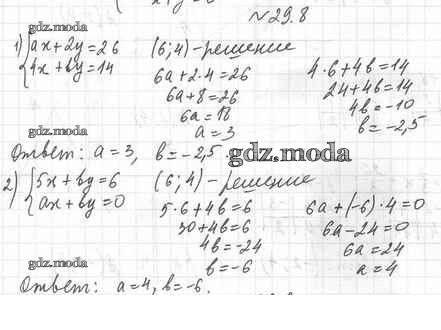 №29.8
gdz.moda
1) {ax+2y=26 (6;4)-решение
{4x+by=14 6a+2·4=26 4·6+4b=14
6a+8=26 24+4b=14
6a=18 4b=-10
a=3 b=-2,5
gdz.moda
Ответ: a=3, b=-2,5
gdz.moda
2) {5x+by=6 (6;4)-решение
{ax+by=0 5·6+4b=6 6a+(-6)·4=0
30+4b=6 6a-24=0
4b=-24 6a=24
b=-6 a=4
gdz.moda
Ответ: a=4, b=-6.